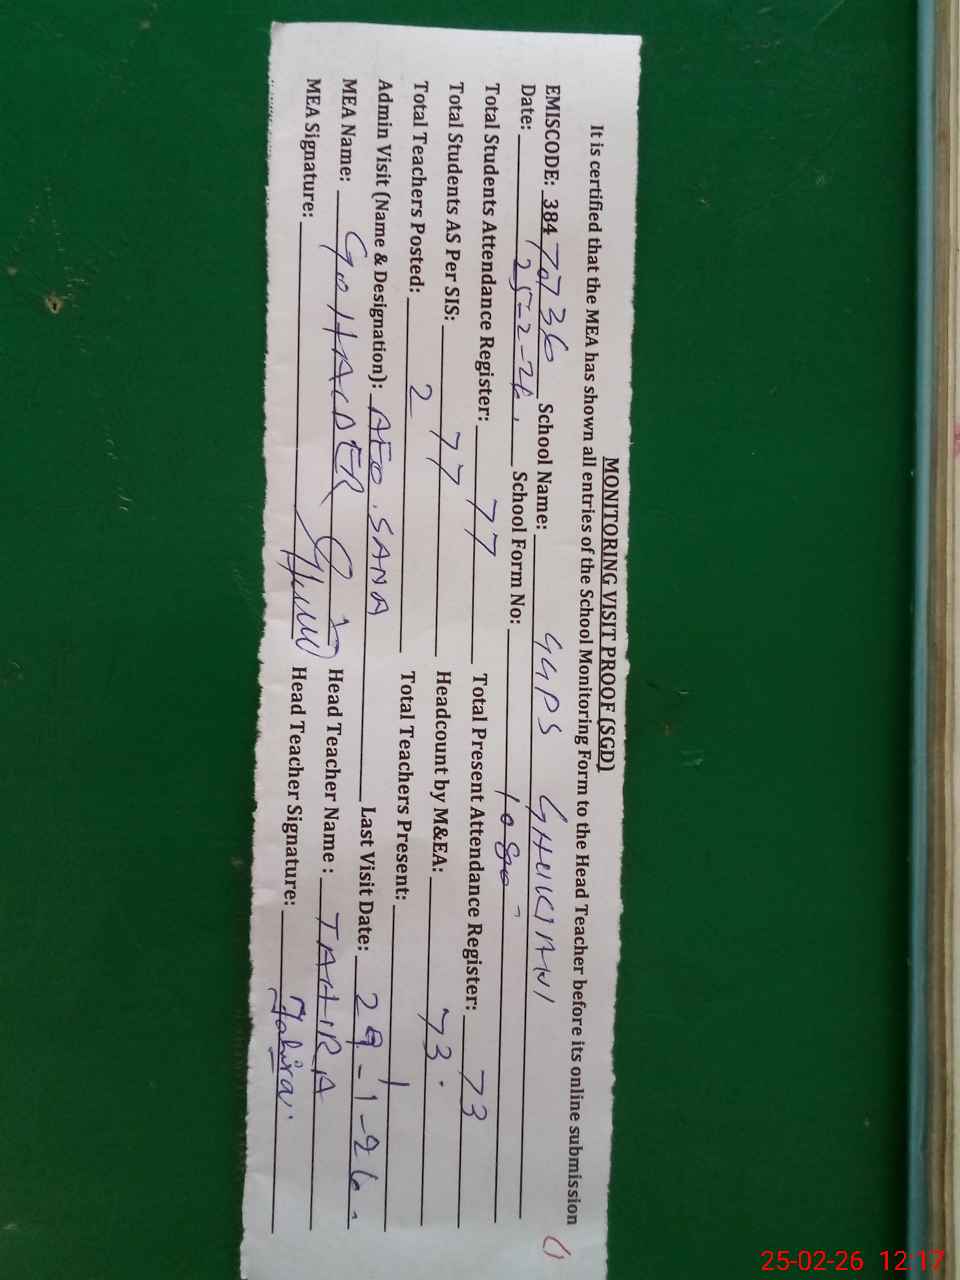 MONITORING VISIT PROOF (SGD)
It is certified that the MEA has shown all entries of the School Monitoring Form to the Head Teacher before its online submission
EMISCODE: 384 70736 School Name: GGPS GHUKIANI
Date: 25-2-26. School Form No: 1080
Total Students Attendance Register: 77 Total Present Attendance Register: 73
Total Students AS Per SIS: 77 Headcount by M&EA: 73.
Total Teachers Posted: 2 Total Teachers Present: 1
Admin Visit (Name & Designation): AEO. SANA Last Visit Date: 29-1-26.
MEA Name: HAIDER Head Teacher Name : TAHIRA
MEA Signature: Head Teacher Signature: Tahira.
25-02-26 12:17